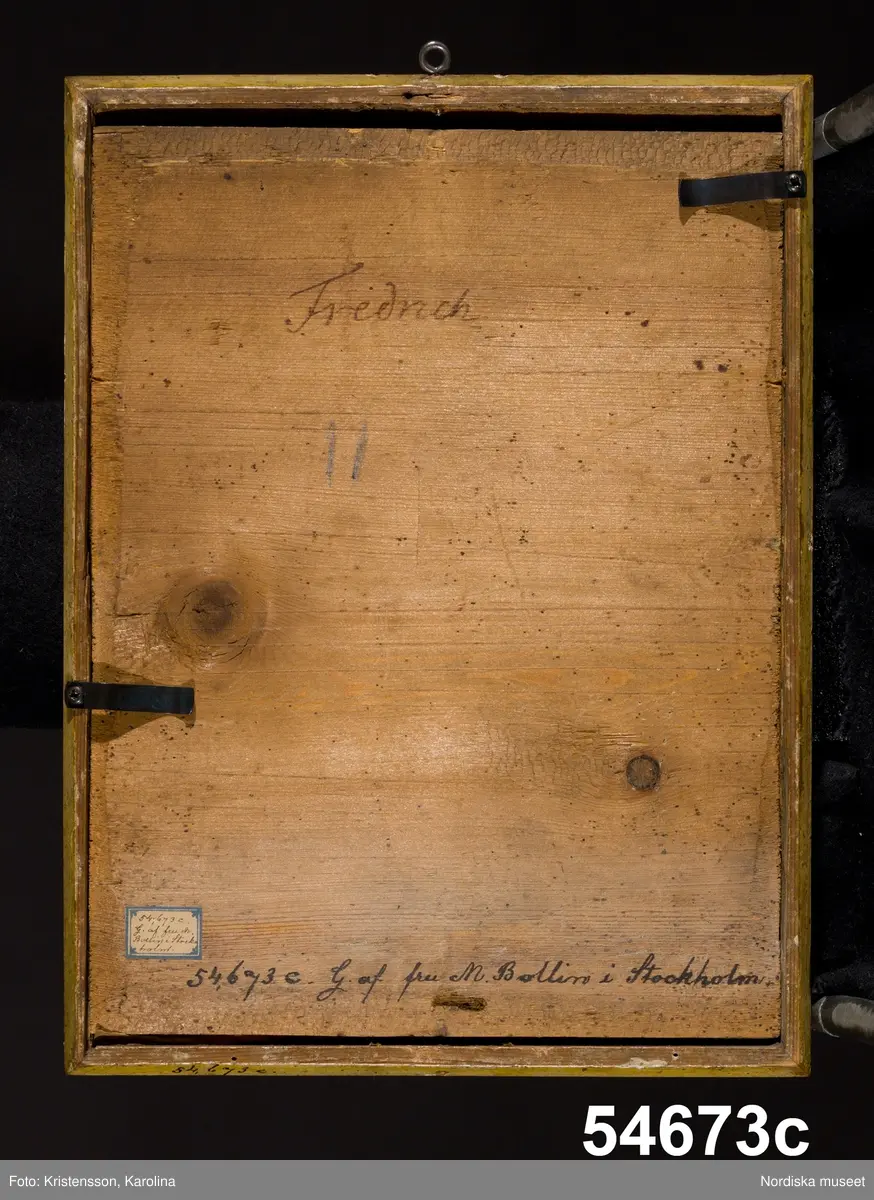 Fredrich
11
54,673 c
G. af fru M.
Bollin i Stock
holm.
54,673 c. G. af fru M. Bollin i Stockholm.
54,673 c.
54673c
Foto: Kristensson, Karolina
Nordiska museet